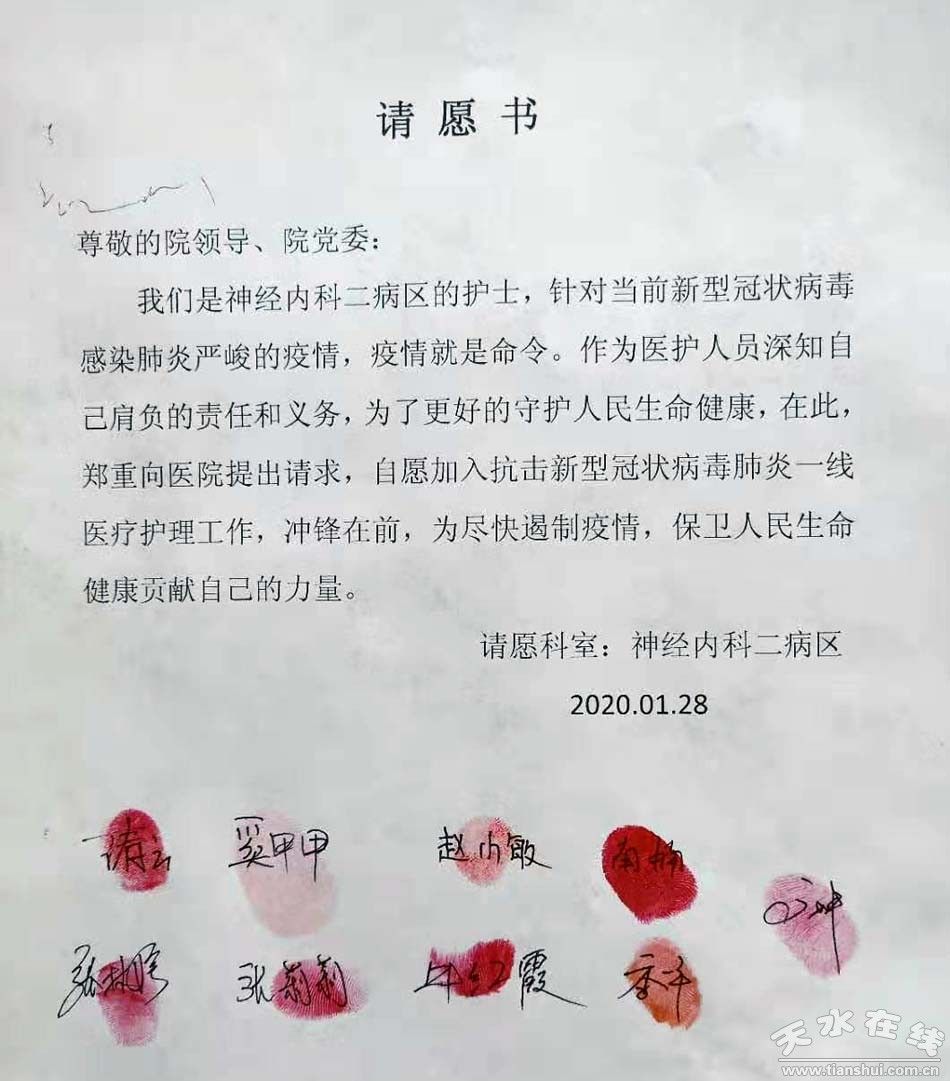 请愿书
尊敬的院领导、院党委：
我们是神经内科二病区的护士，针对当前新型冠状病毒
感染肺炎严峻的疫情，疫情就是命令。作为医护人员深知自
己肩负的责任和义务，为了更好的守护人民生命健康，在此，
郑重向医院提出请求，自愿加入抗击新型冠状病毒肺炎一线
医疗护理工作，冲锋在前，为尽快遏制疫情，保卫人民生命
健康贡献自己的力量。
请愿科室：神经内科二病区
2020.01.28
甲甲 赵小敏
张莉莉 霞
天水在线
www.tianshui.com.cn